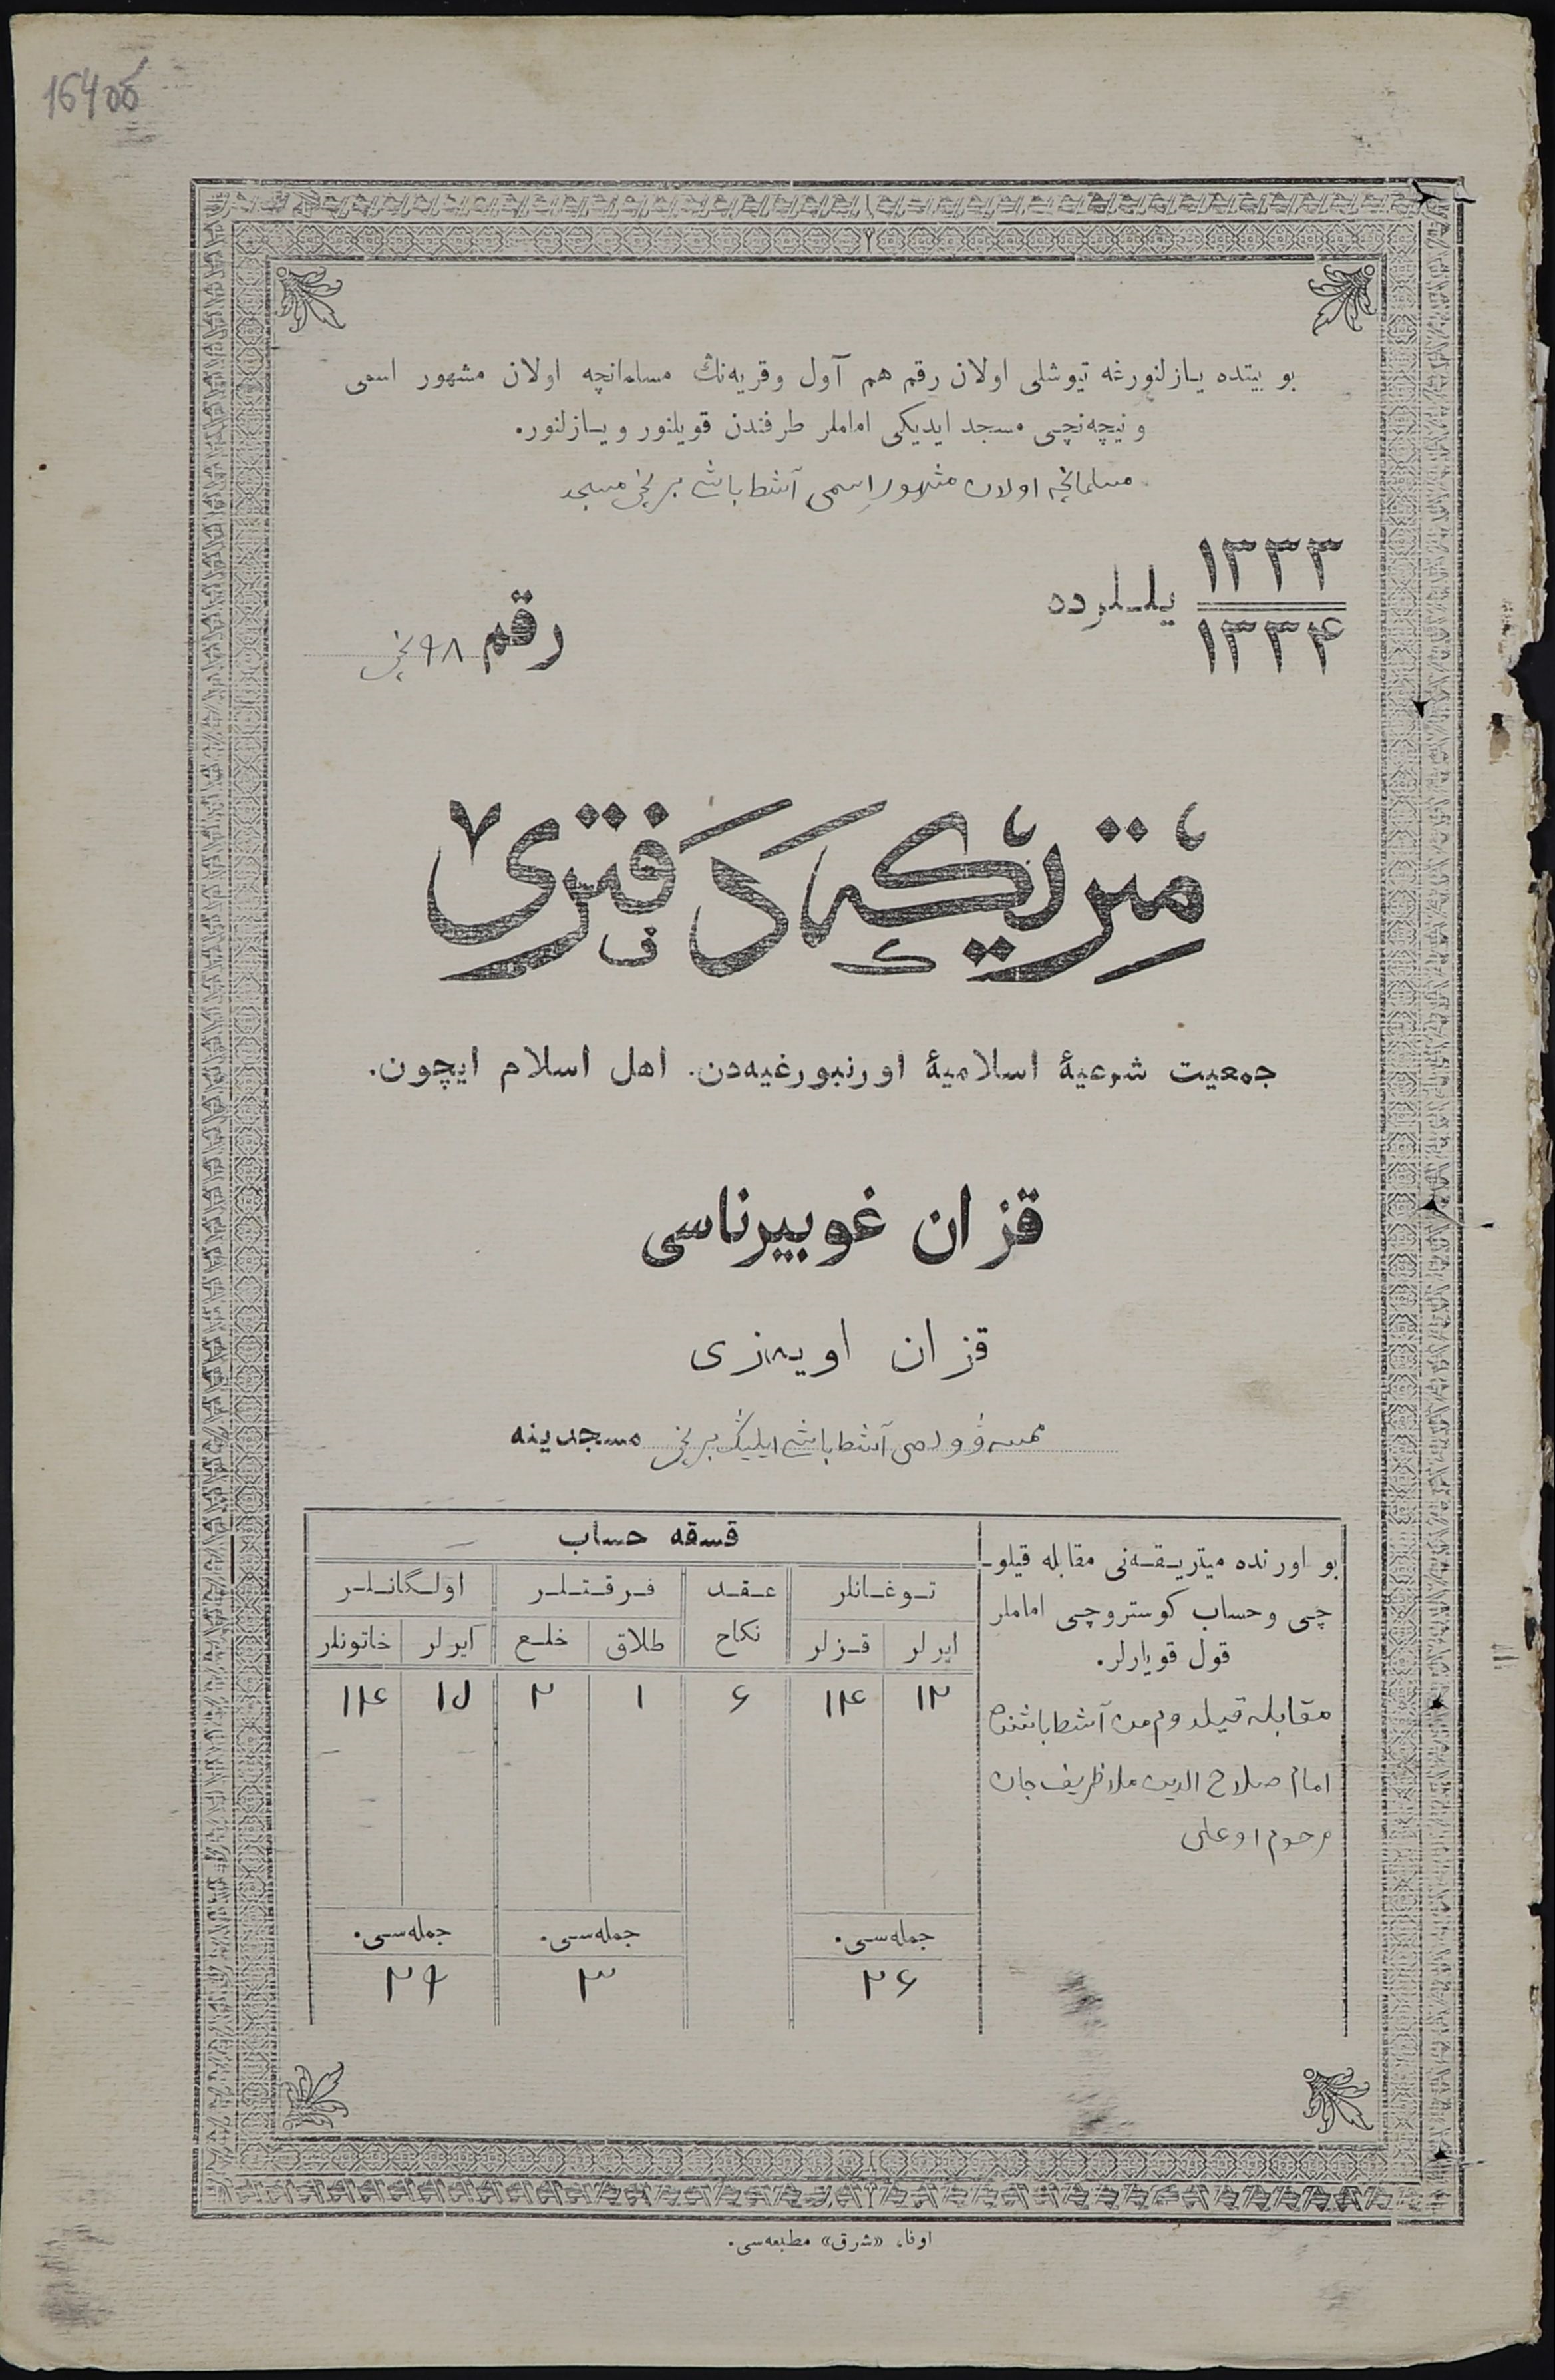 164об
بو بيتده يازلنورغه تيوشلی اولان رقم هم آول وقريه‌نڭ مسلمانچه اولان مشهور اسمی
و نيچه‌نچی مسجد ايديكی اماملر طرفندن قويلنور ويازلنور.
مسلمانچه اولان مشهور اسمی آشطباشی برنچی مسجد
١٣٣٣
١٣٣۴
يللرده
رقم ٩٨ نچی
مِتْرِيكَه دَفْتَرِی
جمعيت شرعيۀ اسلاميۀ اورنبورغيه‌دن. اهل اسلام ايچون.
قزان غوبيرناسی
قزان اويه‌زی
آشطباشی ايلينڭ برنچی مسجدينه
بو اورنده ميتريقه‌نی مقابله قيلو-
چی وحساب كوستروچی اماملر
قول قويارلر.
مقابله قيلدوم من آشطباشنده
امام صلاح الدين ملا ظريف جان
مرحوم اوغلی
قسقه حساب
توغانلر
عقد نكاح
فرقتلر
اولگانلر
ايرلر
قزلر
طلاق
خلع
ايرلر
خاتونلر
١٢
١۴
۶
١
٢
١٥
١۴
جمله‌سی.
جمله‌سی.
جمله‌سی.
٢۶
٣
٢٩
اوفا، «شرق» مطبعه‌سی.